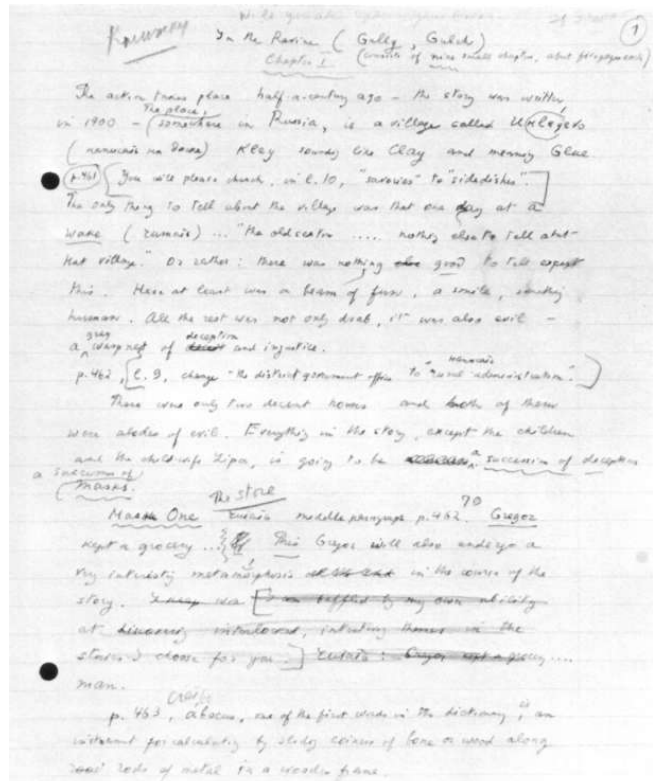 In the Ravine (Gully, Gulch) ①
Chapter I (consists of nine small chapters, about five pages each)
The action takes place half-a-century ago – the story was written
in 1900 – The place, (somewhere in Russia, is a village called Ukleyevo
Kley sounds like Clay and means Glue.
p.461 [You will please change, in l. 10, "savories" to "sidedishes".]
The only thing to tell about the village was that one day at a
wake ... "the old sexton ..... nothing else to tell about
that village." Or rather: there was nothing else good to tell except
this. Here at least was a beam of fun, a smile, something
human. All the rest was not only drab, it was also evil –
a grey wasp nest of deceit deception and injustice.
p. 462, [l. 9, change "the district government office" to "rural administration".]
There were only two decent homes and both of them
were abodes of evil. Everything in the story, except the children
and the child-wife Lipa, is going to be a succession of deceptions
a succession of
masks.
Mask One The store middle paragraph p. 462. 70 Gregor
kept a grocery ... This Gregor will also undergo a
very interesting metamorphosis in the course of the
story. [I am baffled by my own ability
at interesting themes in the
stories I choose for you.] Gregor kept a grocery ....
man.
p. 463, abacus, one of the first words in the dictionary, is an
instrument for calculating by sliding of bone or wood along
rods of metal in a wooden frame.